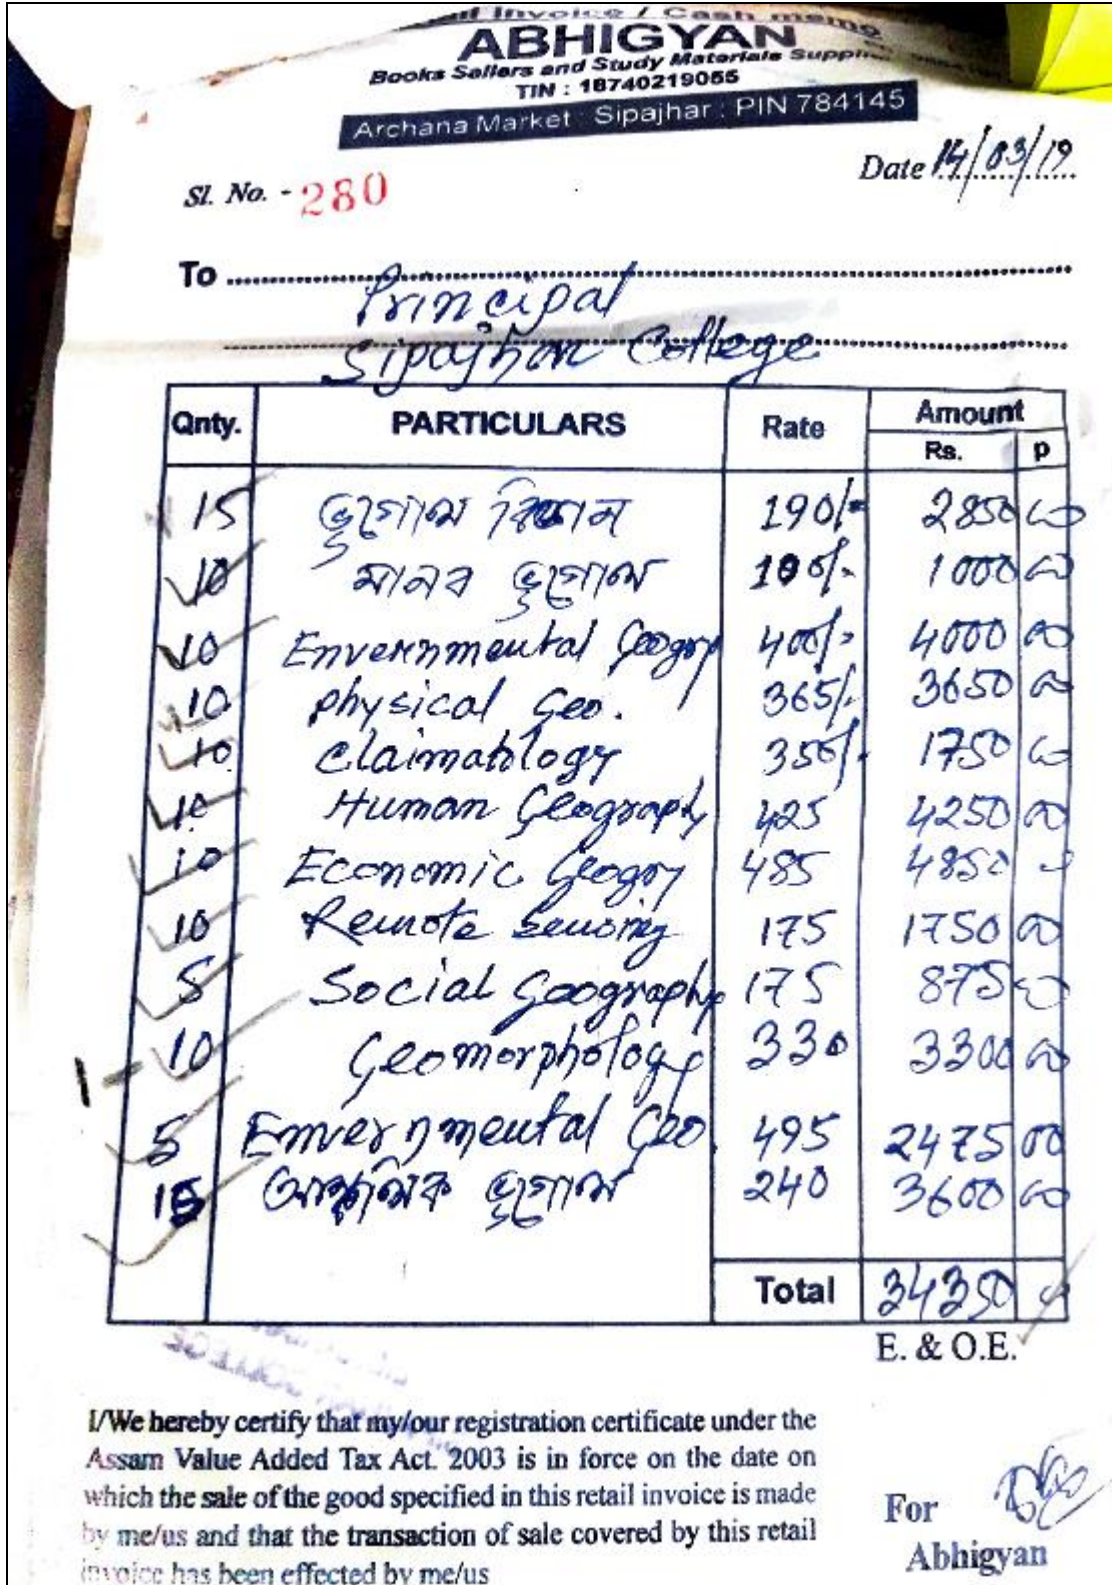 Retail Invoice / Cash memo
ABHIGYAN
Books Sallers and Study Materials Supplier
TIN : 18740219055
Archana Market : Sipajhar : PIN 784145
Sl. No. - 280
Date 14/03/19
To
Principal
Sipajhar College
Qnty. PARTICULARS Rate Amount
Rs. P
15 ভূগোল বিজ্ঞান 190/- 2850 00
10 মানব ভূগোল 100/- 1000 00
10 Envernmental Geogrp 400/- 4000 00
10 physical Geo. 365/- 3650 00
10 Claimatology 350/- 1750 00
10 Human Geography 425 4250 00
10 Economic Geogry 485 4850
10 Remote Sensing 175 1750 00
5 Social Geography 175 875 00
10 Geomorphology 330 3300 00
5 Envernmental Geo. 495 2475 00
15 আঞ্চলিক ভূগোল 240 3600 00
Total 34350
E. & O.E.
COLLEGE
I/We hereby certify that my/our registration certificate under the
Assam Value Added Tax Act. 2003 is in force on the date on
which the sale of the good specified in this retail invoice is made
by me/us and that the transaction of sale covered by this retail
invoice has been effected by me/us
For
Abhigyan